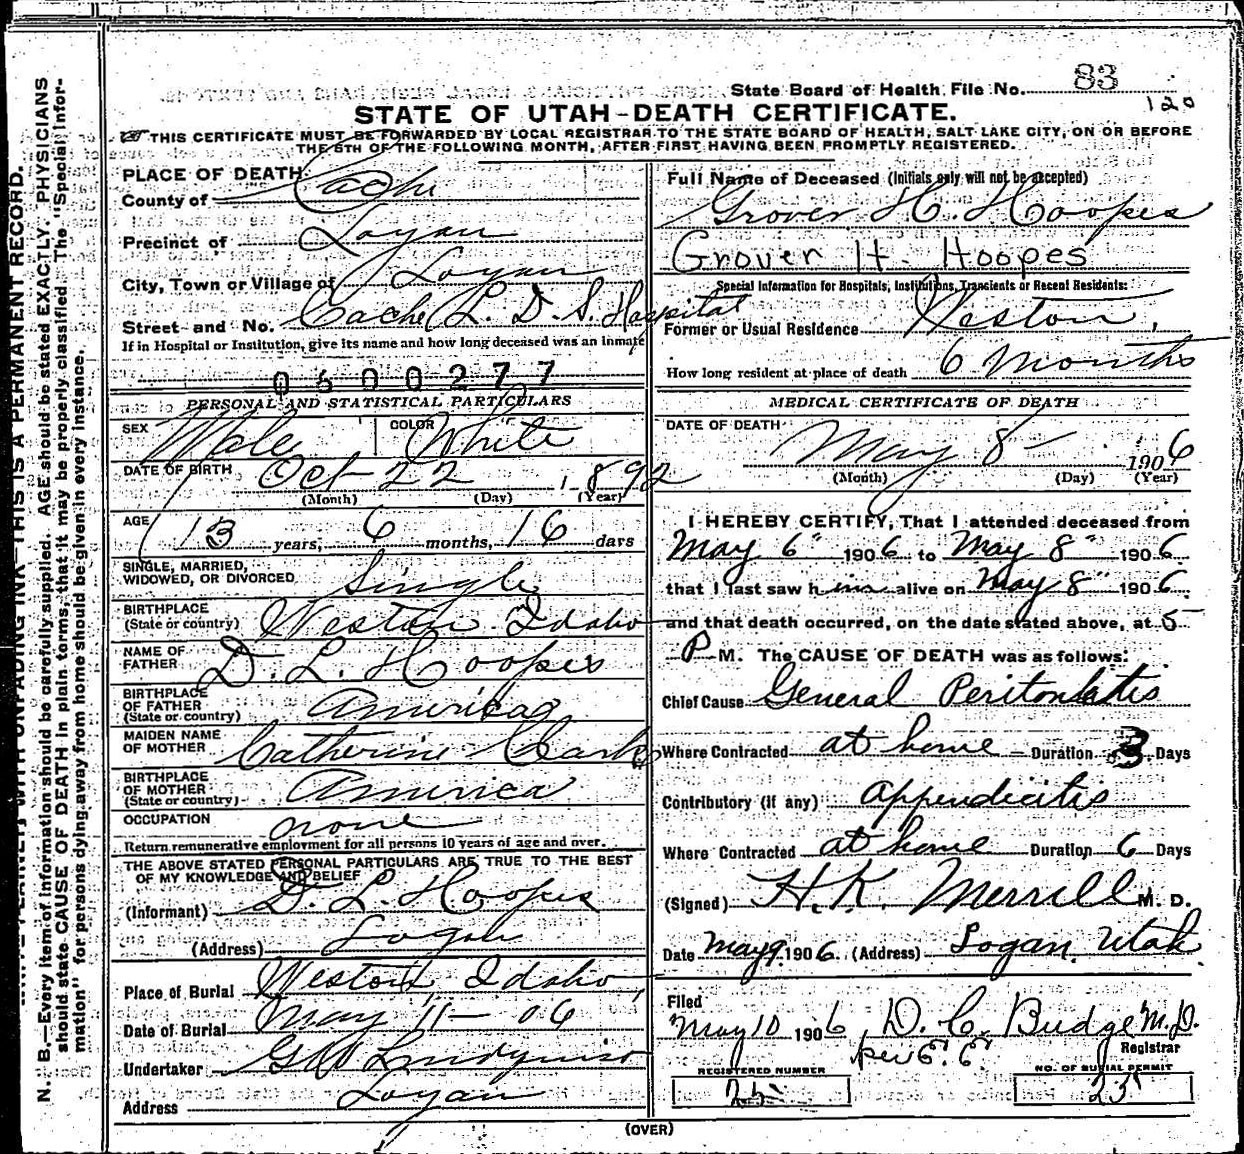 State Board of Health File No. 83
120
STATE OF UTAH-DEATH CERTIFICATE.
THIS CERTIFICATE MUST BE FORWARDED BY LOCAL REGISTRAR TO THE STATE BOARD OF HEALTH, SALT LAKE CITY, ON OR BEFORE
THE 5TH OF THE FOLLOWING MONTH, AFTER FIRST HAVING BEEN PROMPTLY REGISTERED.
PLACE OF DEATH:
County of Cache
Precinct of Logan
City, Town or Village of Logan
Street and No. Cache L. D. S. Hospital
If in Hospital or Institution, give its name and how long deceased was an inmate
0600277
PERSONAL AND STATISTICAL PARTICULARS
SEX Male COLOR White
DATE OF BIRTH Oct 22 1892
(Month) (Day) (Year)
AGE 13 years, 6 months, 16 days
SINGLE, MARRIED,
WIDOWED, OR DIVORCED Single
BIRTHPLACE
(State or country) Weston Idaho
NAME OF
FATHER D. L. Hoopes
BIRTHPLACE
OF FATHER
(State or country) America
MAIDEN NAME
OF MOTHER Catherine Clarke
BIRTHPLACE
OF MOTHER
(State or country) America
OCCUPATION none
Return remunerative employment for all persons 10 years of age and over.
THE ABOVE STATED PERSONAL PARTICULARS ARE TRUE TO THE BEST
OF MY KNOWLEDGE AND BELIEF
(Informant) D. L. Hoopes
(Address) Logan
Place of Burial Weston, Idaho,
Date of Burial May 11 - 06
Undertaker Lindquist
Address Logan
Full Name of Deceased (Initials only will not be accepted)
Grover H. Hoopes
Grover H. Hoopes
Special Information for Hospitals, Institutions, Transients or Recent Residents:
Former or Usual Residence Weston,
How long resident at place of death 6 Months
MEDICAL CERTIFICATE OF DEATH
DATE OF DEATH
May 8 1906
(Month) (Day) (Year)
I HEREBY CERTIFY, That I attended deceased from
May 6" 1906 to May 8" 1906
that I last saw him alive on May 8" 1906
and that death occurred, on the date stated above, at 5
P M. The CAUSE OF DEATH was as follows:
Chief Cause General Peritonitis
Where Contracted at home Duration 3 Days
Contributory (if any) appendicitis
Where Contracted at home Duration 6 Days
(Signed) H. K. Merrill M. D.
Date May 9 1906 (Address) Logan, Utah
Filed
May 10 1906, D. C. Budge M. D.
Registrar
REGISTERED NUMBER
25
NO. OF BURIAL PERMIT
25
(OVER)
THIS IS A PERMANENT RECORD.
N. B.—Every item of information should be carefully supplied. AGE should be stated EXACTLY. PHYSICIANS
should state CAUSE OF DEATH in plain terms, that it may be properly classified. The "Special Infor-
mation" for persons dying away from home should be given in every instance.